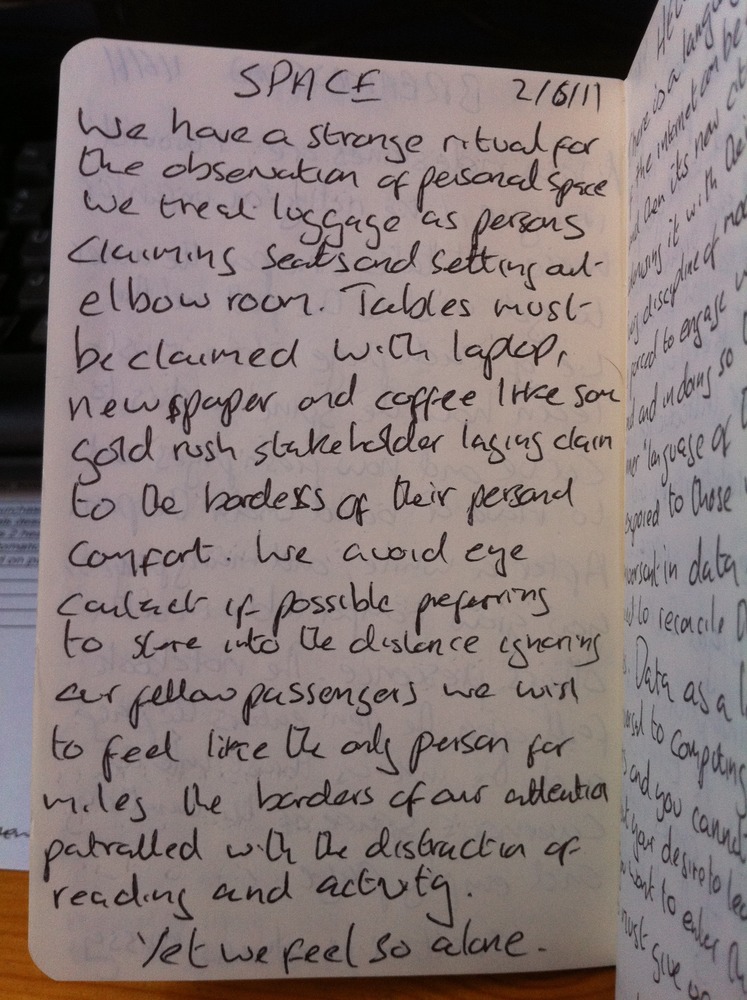 SPACE 2/6/11
We have a strange ritual for
the observation of personal space
we treat luggage as persons
claiming seats and setting out
elbow room. Tables must
be claimed with laptop,
newspaper and coffee like some
gold rush stakeholder laying claim
to the borders of their personal
comfort. We avoid eye
contact if possible preferring
to stare into the distance ignoring
our fellow passengers we wish
to feel like the only person for
miles the borders of our attention
patrolled with the distraction of
reading and activity.
Yet we feel so alone.
there is a langu
the internet can be
and then its new cit
it with thei
discipline of mo
to engage
and in doing so
language of
exposed to those
in data
to reconcile
Data as a
to computing
and you cannot
your desire to lea
want to enter the
must give